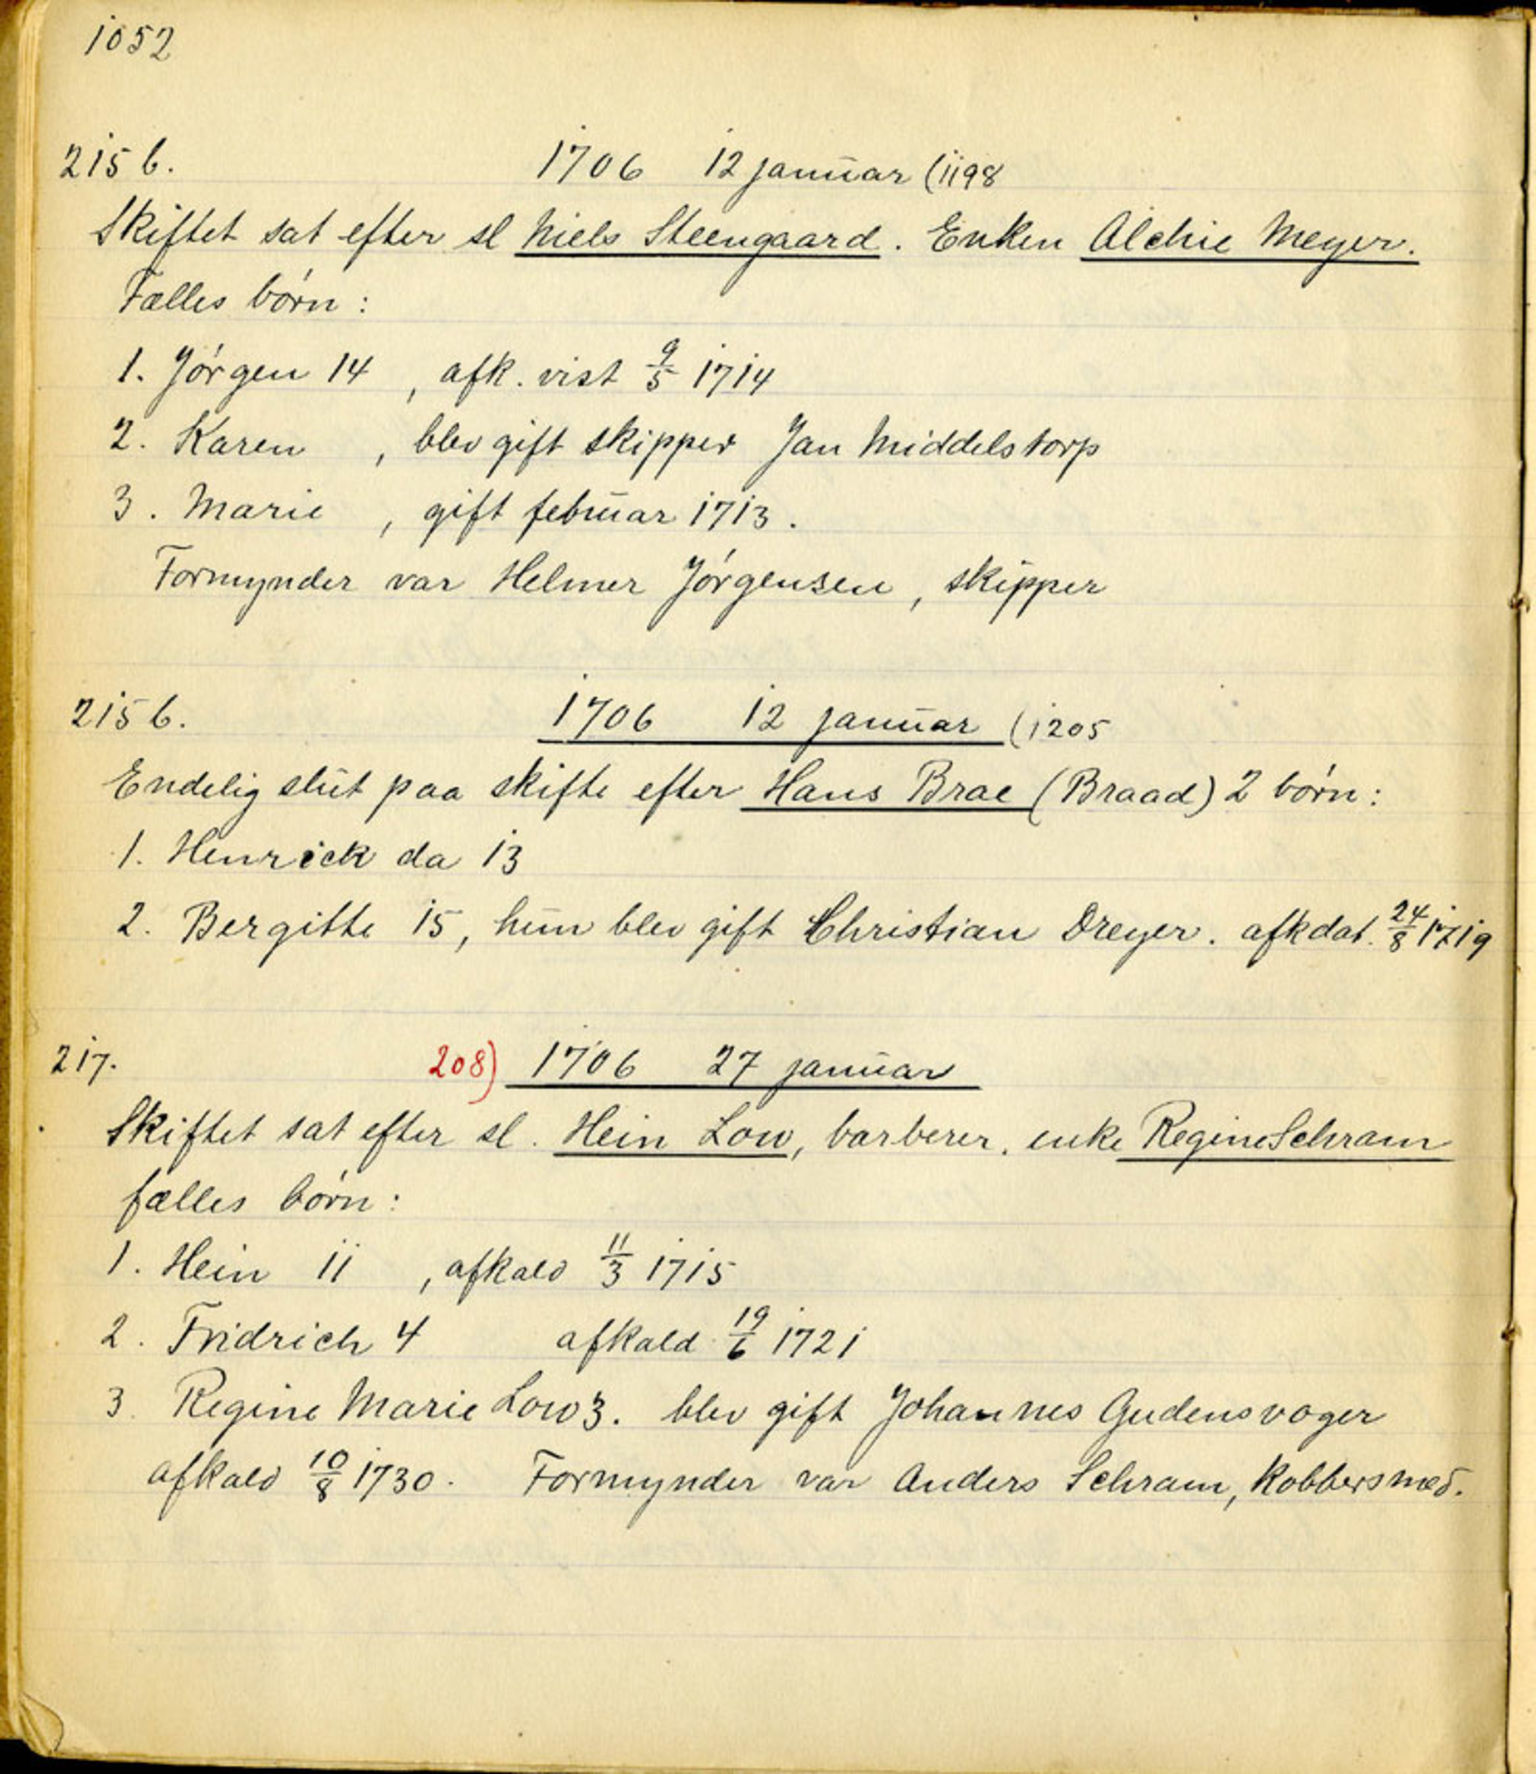 1052
215 b. 1706 12 januar (1198
Skiftet sat efter sl Niels Steengaard. Enken Alchie Meyer.
Fælles børn:
1. Jørgen 14, afk. vist 9/5 1714
2. Karen, blev gift skipper Jan Middelstorp
3. Marie, gift februar 1713.
Formynder var Helmer Jørgensen, skipper
215 b. 1706 12 januar (1205
Endelig slut paa skifte efter Hans Brae (Braad) 2 børn:
1. Henrick da 13
2. Bergitte 15, hun blev gift Christian Dreyer. afkdat. 24/8 1719
217. 208) 1706 27 januar
Skiftet sat efter sl. Hein Low, barberer. enke Regine Schram
fælles børn:
1. Hein 11, afkald 11/3 1715
2. Fridrich 4 afkald 19/6 1721
3. Regine Marie Low 3. blev gift Johannes Gudensvoger
afkald 10/8 1730. Formynder var Anders Schram, kobbersmed.